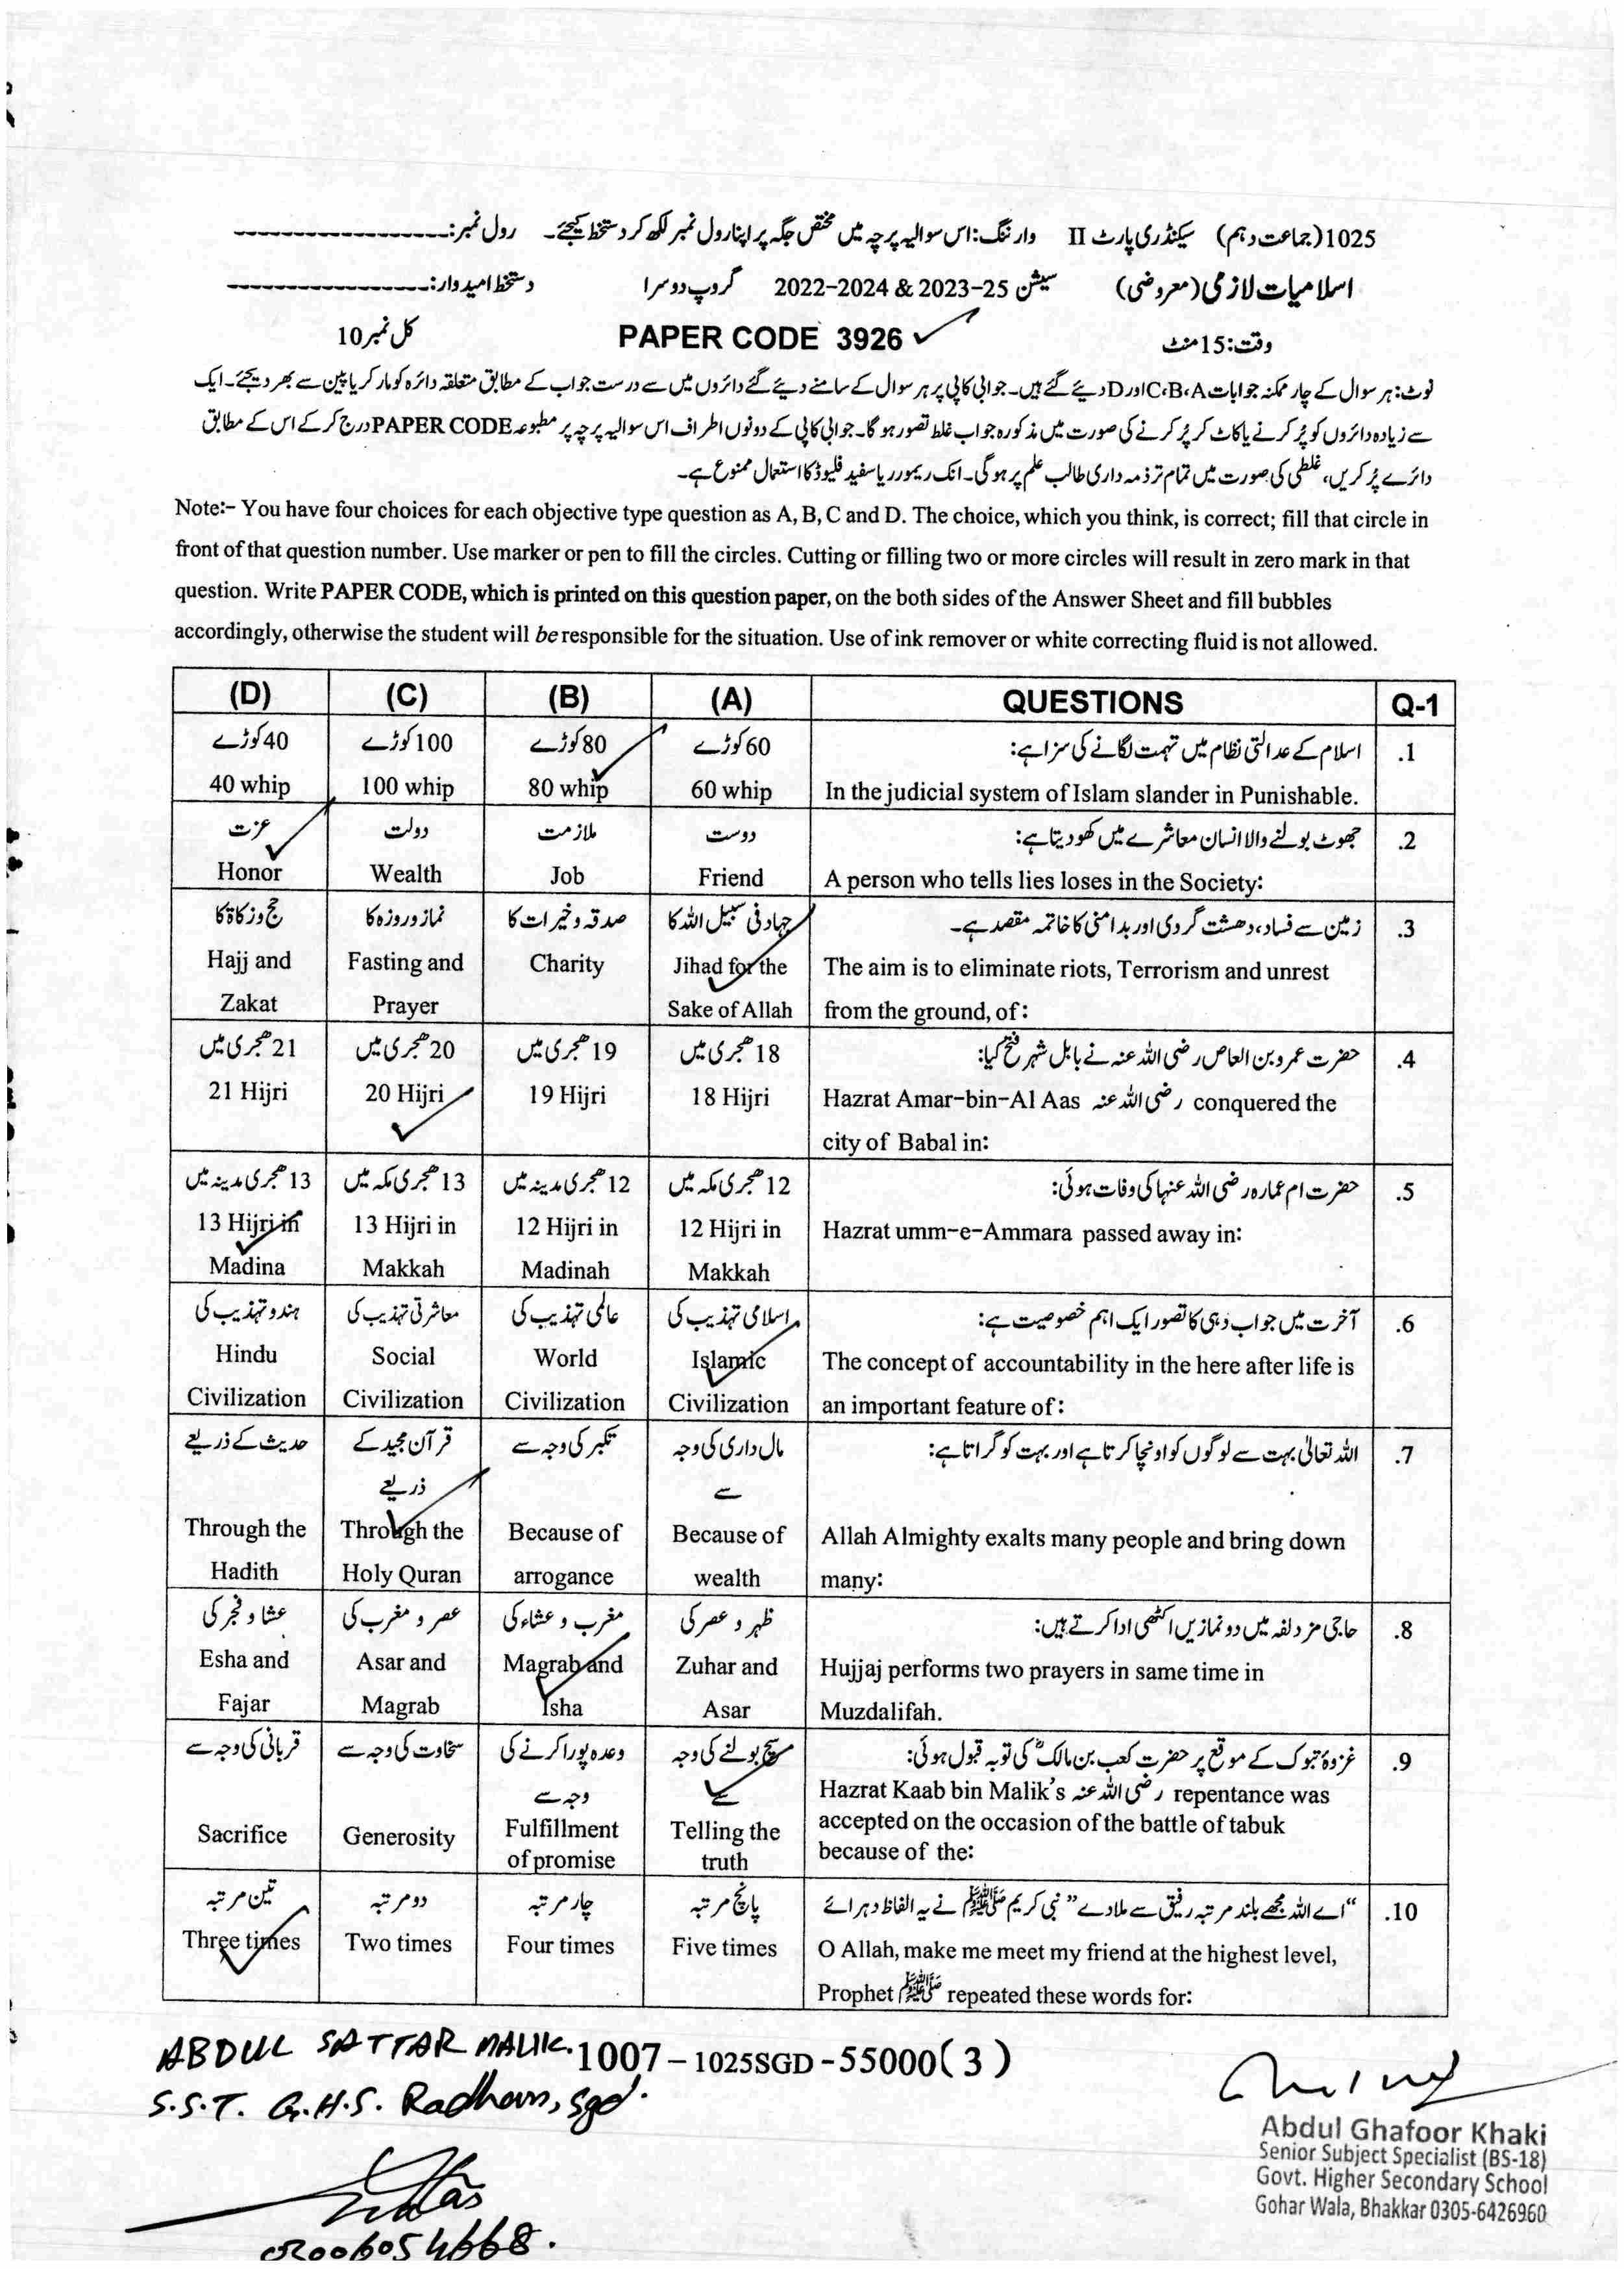 1025(جماعت دہم) سیکنڈری پارٹ II وارننگ: اس سوالیہ پرچہ میں مختص جگہ پر اپنا رول نمبر لکھ کر دستخط کیجئے۔ رول نمبر:
اسلامیات لازمی (معروضی) سیشن 2022-2024 & 2023-25 گروپ دوسرا دستخط امیدوار:
وقت: 15 منٹ PAPER CODE 3926 کل نمبر 10
نوٹ: ہر سوال کے چار ممکنہ جوابات C،B،A اور D دیئے گئے ہیں۔ جوابی کاپی پر ہر سوال کے سامنے دیئے گئے دائروں میں سے درست جواب کے مطابق متعلقہ دائرہ کو مارکر یا پین سے بھر دیجئے۔ ایک
سے زیادہ دائروں کو پُر کرنے یا کاٹ کر پُر کرنے کی صورت میں مذکورہ جواب غلط تصور ہو گا۔ جوابی کاپی کے دونوں اطراف اس سوالیہ پرچہ پر مطبوعہ PAPER CODE درج کر کے اس کے مطابق
دائرے پُر کریں، غلطی کی صورت میں تمام تر ذمہ داری طالب علم پر ہو گی۔ انک ریموور یا سفید فلیوڈ کا استعمال ممنوع ہے۔
Note:- You have four choices for each objective type question as A, B, C and D. The choice, which you think, is correct; fill that circle in
front of that question number. Use marker or pen to fill the circles. Cutting or filling two or more circles will result in zero mark in that
question. Write PAPER CODE, which is printed on this question paper, on the both sides of the Answer Sheet and fill bubbles
accordingly, otherwise the student will be responsible for the situation. Use of ink remover or white correcting fluid is not allowed.
(D) (C) (B) (A) QUESTIONS Q-1
.1 اسلام کے عدالتی نظام میں تہمت لگانے کی سزا ہے: 60 کوڑے 80 کوڑے 100 کوڑے 40 کوڑے
40 whip 100 whip 80 whip 60 whip In the judicial system of Islam slander in Punishable.
.2 جھوٹ بولنے والا انسان معاشرے میں کھو دیتا ہے: دوست ملازمت دولت عزت
Honor Wealth Job Friend A person who tells lies loses in the Society:
.3 زمین سے فساد، دھشت گردی اور بدامنی کا خاتمہ مقصد ہے۔ جہاد فی سبیل اللہ کا صدقہ وخیرات کا نماز و روزہ کا حج و زکاۃ کا
Hajj and Fasting and Charity Jihad for the The aim is to eliminate riots, Terrorism and unrest
Zakat Prayer Sake of Allah from the ground, of:
.4 حضرت عمرو بن العاص رضی اللہ عنہ نے بابل شہر فتح کیا: 18 ھجری میں 19 ھجری میں 20 ھجری میں 21 ھجری میں
21 Hijri 20 Hijri 19 Hijri 18 Hijri Hazrat Amar-bin-Al Aas رضی اللہ عنہ conquered the
city of Babal in:
.5 حضرت ام عمارہ رضی اللہ عنہا کی وفات ہوئی: 12 ھجری مکہ میں 12 ھجری مدینہ میں 13 ھجری مکہ میں 13 ھجری مدینہ میں
13 Hijri in 13 Hijri in 12 Hijri in 12 Hijri in Hazrat umm-e-Ammara passed away in:
Madina Makkah Madinah Makkah
.6 آخرت میں جواب دہی کا تصور ایک اہم خصوصیت ہے: اسلامی تہذیب کی عالمی تہذیب کی معاشرتی تہذیب کی ہندو تہذیب کی
Hindu Social World Islamic The concept of accountability in the here after life is
Civilization Civilization Civilization Civilization an important feature of:
.7 اللہ تعالیٰ بہت سے لوگوں کو اونچا کرتا ہے اور بہت کو گراتا ہے: مال داری کی وجہ تکبر کی وجہ سے قرآن مجید کے حدیث کے ذریعے
سے ذریعے
Through the Through the Because of Because of Allah Almighty exalts many people and bring down
Hadith Holy Quran arrogance wealth many:
.8 حاجی مزدلفہ میں دو نمازیں اکٹھی ادا کرتے ہیں: ظہر و عصر کی مغرب و عشاء کی عصر و مغرب کی عشا و فجر کی
Esha and Asar and Magrab and Zuhar and Hujjaj performs two prayers in same time in
Fajar Magrab Isha Asar Muzdalifah.
.9 غزوۂ تبوک کے موقع پر حضرت کعب بن مالکؓ کی توبہ قبول ہوئی: سچ بولنے کی وجہ وعدہ پورا کرنے کی سخاوت کی وجہ سے قربانی کی وجہ سے
سے وجہ سے
Hazrat Kaab bin Malik's رضی اللہ عنہ repentance was
Sacrifice Generosity Fulfillment Telling the accepted on the occasion of the battle of tabuk
of promise truth because of the:
.10 "اے اللہ مجھے بلند مرتبہ رفیق سے ملا دے" نبی کریم ﷺ نے یہ الفاظ دہرائے پانچ مرتبہ چار مرتبہ دو مرتبہ تین مرتبہ
Three times Two times Four times Five times O Allah, make me meet my friend at the highest level,
Prophet ﷺ repeated these words for:
ABDUL SATTAR MALIK. 1007-1025SGD-55000(3)
S.S.T. G.H.S. Radhan, Sgd.
Abdul Ghafoor Khaki
Senior Subject Specialist (BS-18)
Govt. Higher Secondary School
Gohar Wala, Bhakkar 0305-6426960